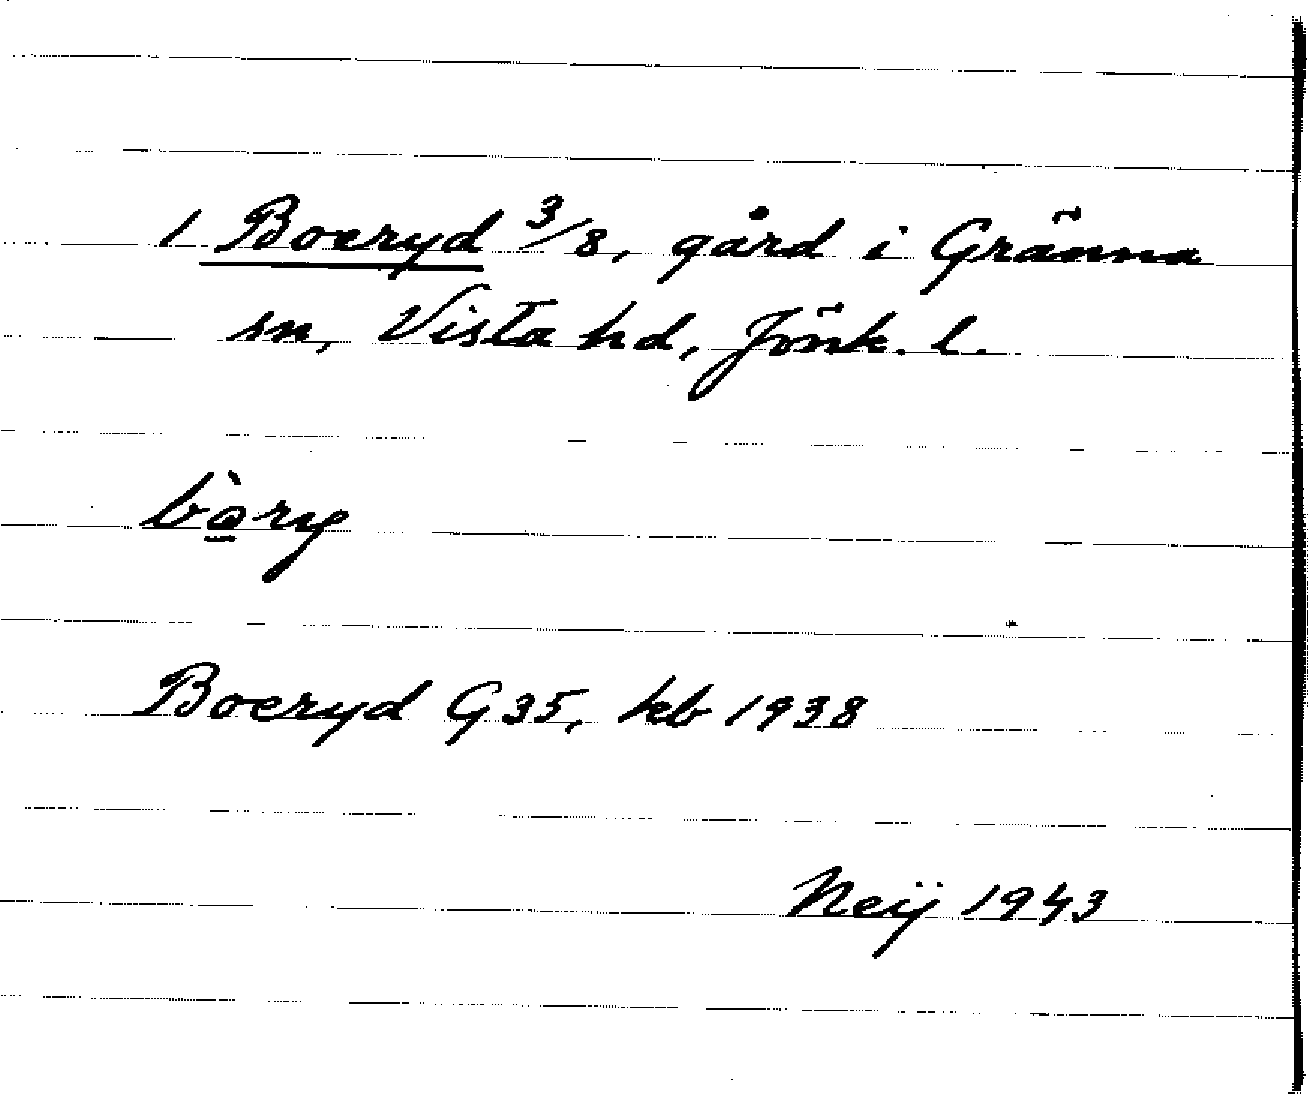 1 Boeryd 3/8, gård i Gränna
sn, Vista hd, Jönk. l.
bo̠̊̀ry
Boeryd G 35, keb 1938
Neij 1943